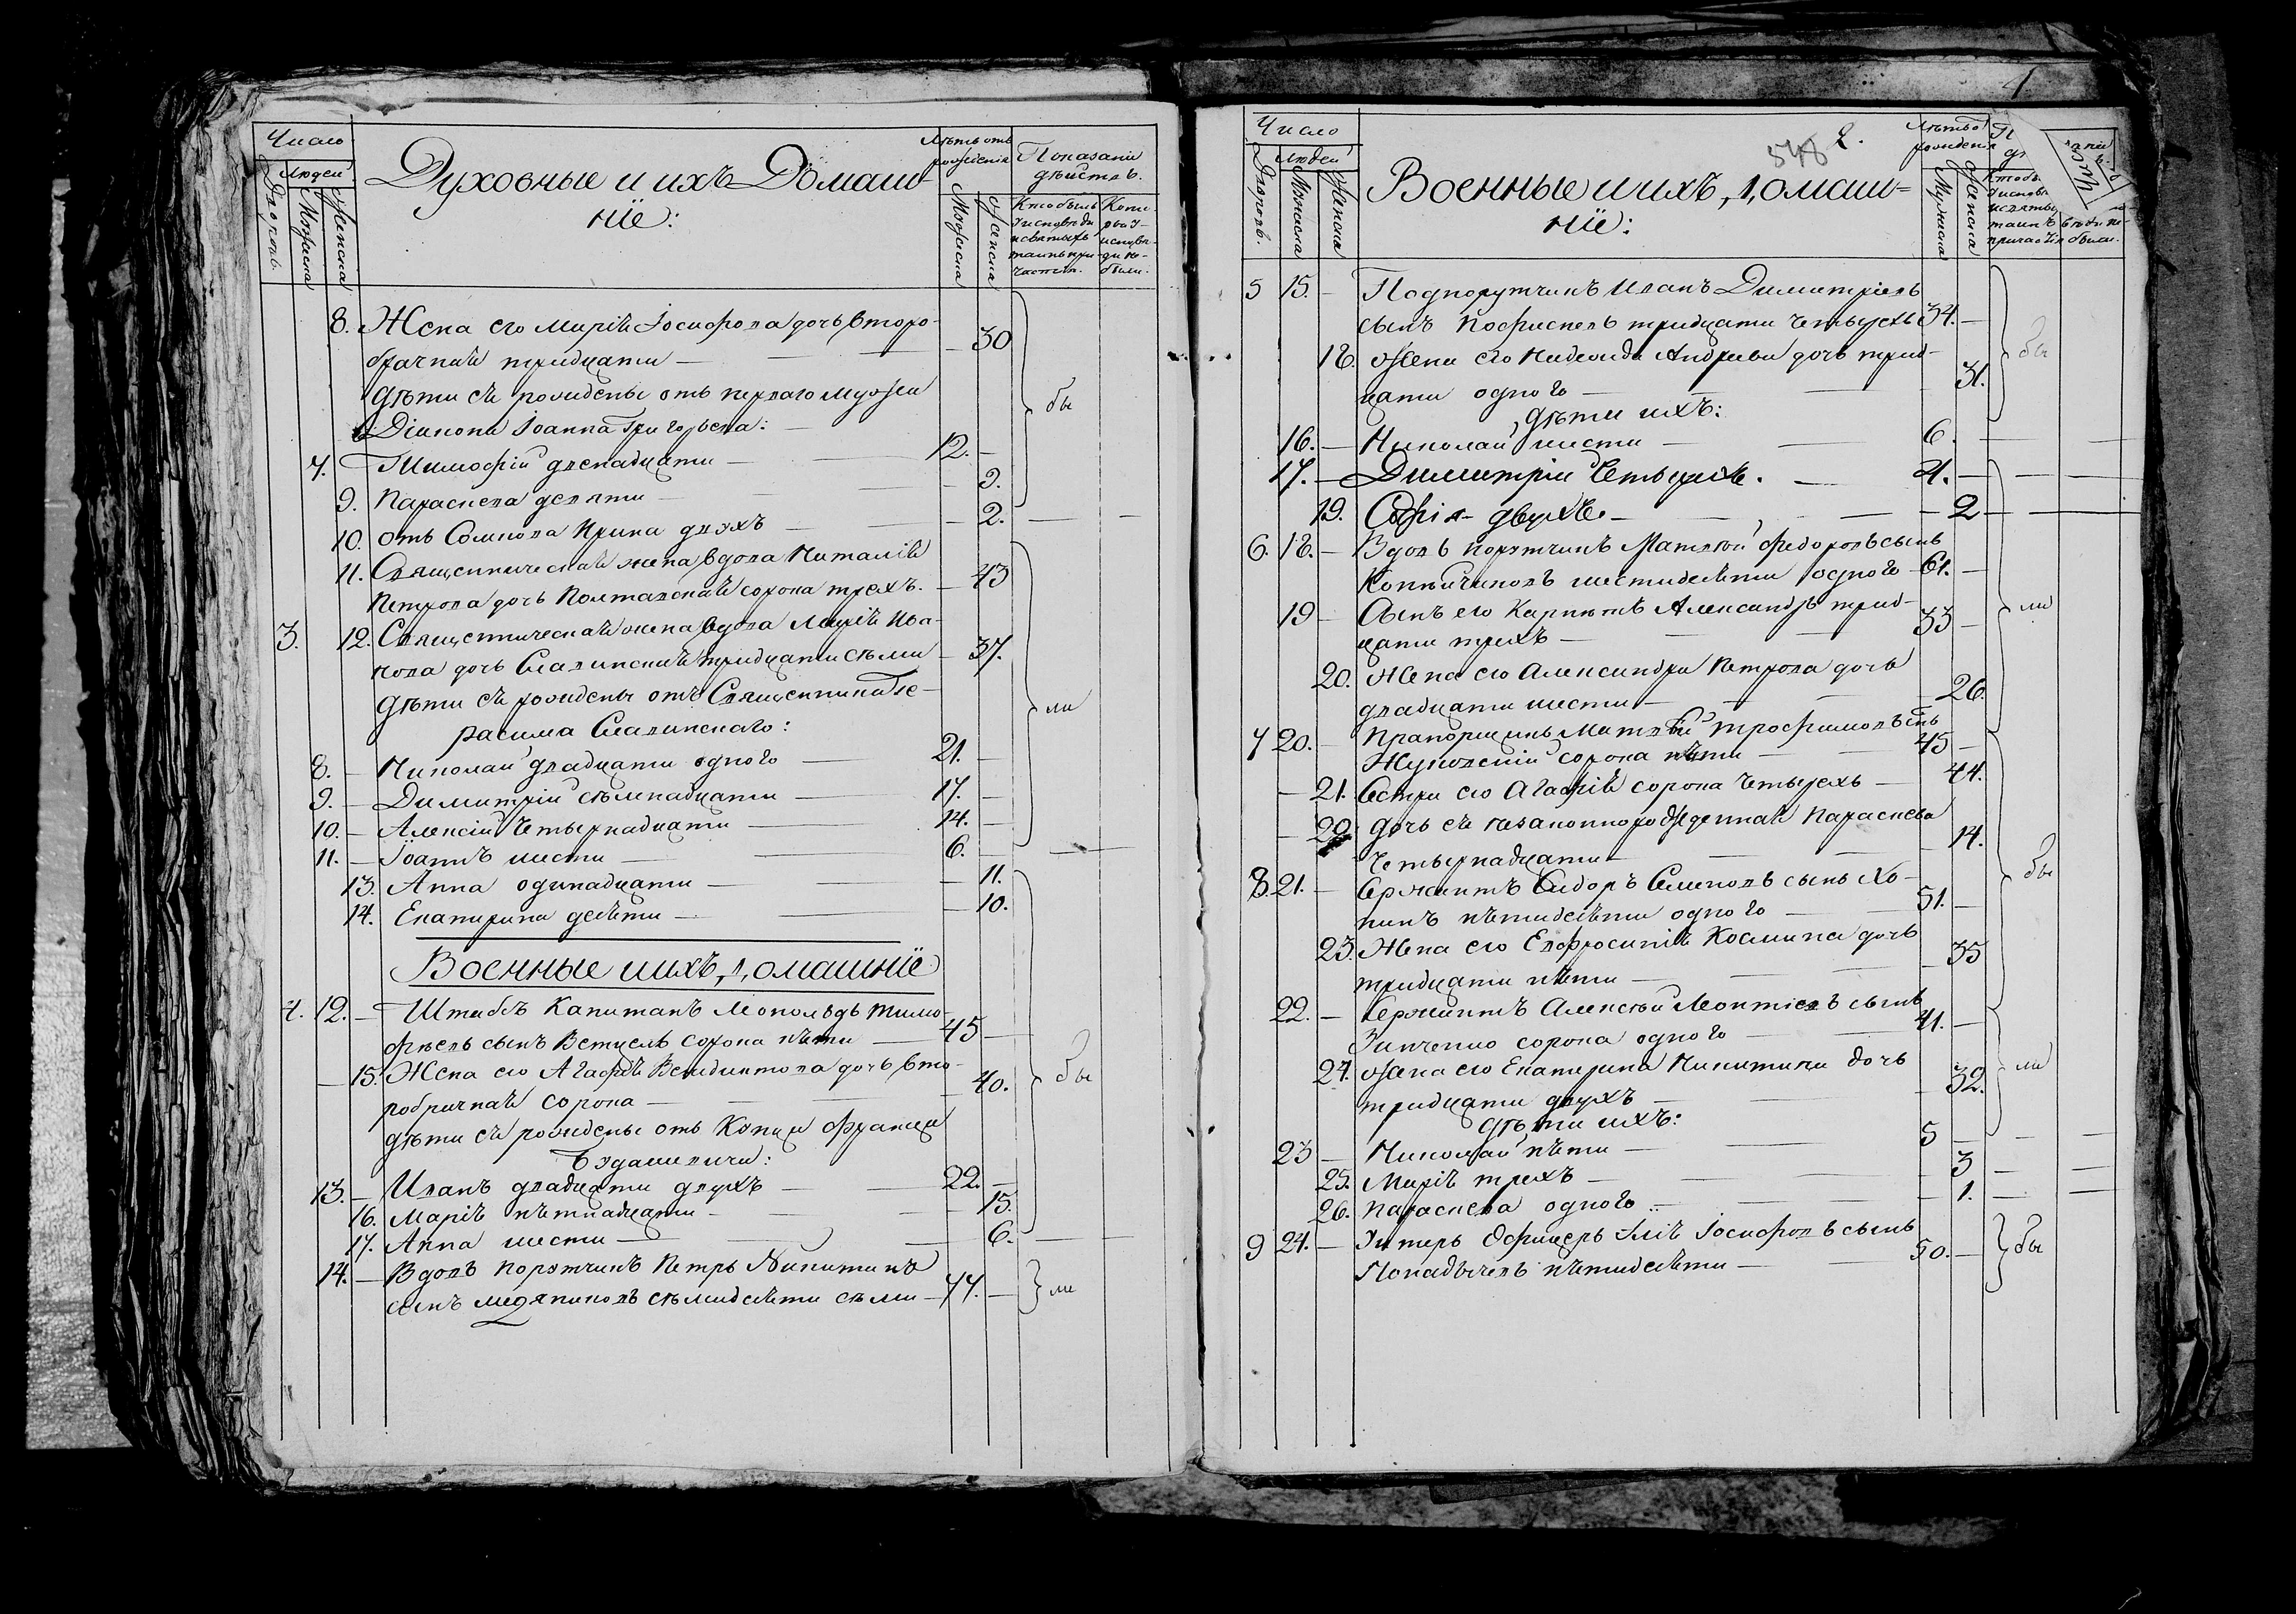 Число
Людей
Дворовъ.
Мужеска
Женска
Духовные и ихъ Домаш-
ніе:
Лѣтъ отъ
рожденія
Мужеска
Женска
Показаніе
дѣйствъ.
Кто былъ
у исповѣди
и святыхъ
таинъ при-
частія.
Кои
у
исповѣ-
ди не
были.
8. Жена его Марія Іосифова дочь второ-
брачная тридцати — 30
Дѣти сѣ рожденые отъ перваго мужа
Діакона Іоанна Григорьева:
бы
7. — Тимофій двенадцати — 12. —
9. Параскева девяти — 9.
10. отъ Самнола Ирина двухъ — 2. —
11. Священническая жена вдова Наталія
Петрова дочь Полтавская сорока трехъ. — 43
3. 12. Священническая жена вдова Марія Ива-
нова дочь тридцати сѣми — 37.
Дѣти сѣ рожденые отъ Священника Ге-
расима
ли
8. — Николай двадцати одного — 21. —
9. — Димитрій сѣмнадцати — 17. —
10. — Алексій четырнадцати — 14. —
11. — Іоаннъ шести — 6. —
13. Анна одинадцати — 11.
14. Екатерина десяти — 10.
Военные и ихъ домашніе
4. 12. — Штабсъ Капитанъ Леопольдъ Тимо-
фѣевъ сынъ сорока пяти — 45 —
— 15. Жена его Агафія дочь вто-
робрачная сорока — 40.
бы
дѣти сѣ рожденые отъ Франца
13. — Иванъ двадцати двухъ — 22. —
16. Марія пятнадцати — 15.
17. Анна шести — 6. —
14. — Вдовъ Порутчикъ Петръ Никитинъ
сынъ сѣмидесяти сѣми — 77. — ли
Число
Людей
Дворовъ.
Мужеска
Женска
548 2.
Военные и ихъ домаш-
ніе:
Лѣтъ о
рожденія
Мужеска
Женска
5 15. — Подпорутчикъ Иванъ Димитріевъ
сынъ тридцати четырехъ 34. —
18. Жена его Андреева дочь трид-
цати одного — 31.
бы
Дѣти ихъ:
16. — Николай шести — 6. —
17. — Димитрій четырехъ. — 4. —
19. Софія двухъ. — 2 —
6. 18. — Вдовъ порутчикъ Матвѣй Федоровъ сынъ
шестидесяти одного — 61. —
19 — Сынъ его Александръ трид-
цати трехъ — 33 —
ли
20. Жена его Александра Петрова дочь
двадцати шести — 26.
7 20. — Прапорщикъ Матвѣй Трофимовъ снъ
Жуковскій сорока пяти — 45 —
— 21. Сестра его Агафія сорока четырехъ — 44.
— 20. Дочь сѣ незаконнорожденная Параскева
четырнадцати — 14.
бы
8. 21. — Сержантъ Сидоръ Семеновъ сынъ Хо-
нинъ пятидесяти одного — 51. —
23. Жена его Евфросинія Космина дочь
тридцати пяти — 35
22. — Сержантъ Алексѣй Леонтіевъ сынъ
Зинченко сорока одного — 41. —
24. Жена его Екатерина Никитина дочь
тридцати двухъ — 32.
ли
Дѣти ихъ:
23 — Николай пяти — 5 —
25. Марія трехъ — 3 —
26. Параскева одного — 1. —
9 24. — Унтеръ Офицеръ Илія Іосифовъ сынъ
пятидесяти — 50. — бы